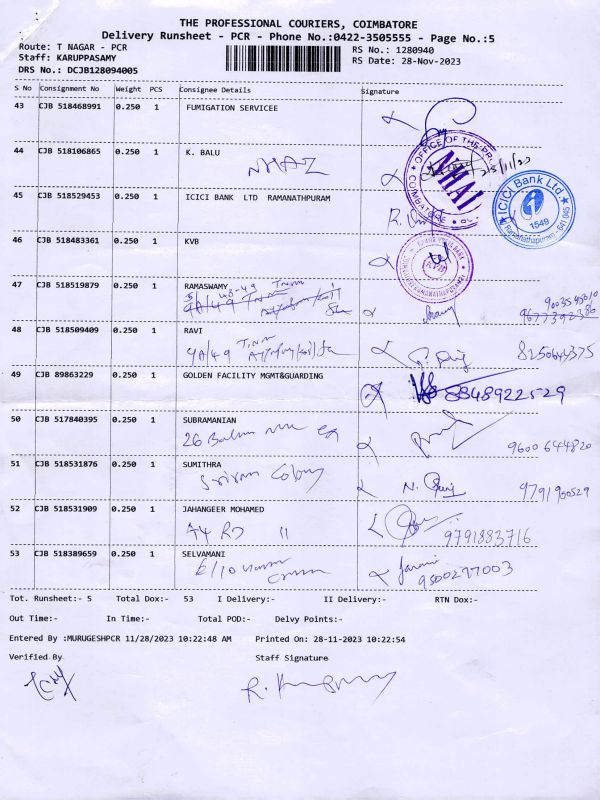 THE PROFESSIONAL COURIERS, COIMBATORE
Delivery Runsheet - PCR - Phone No.:0422-3505555 - Page No.:5
Route: T NAGAR - PCR RS No.: 1280940
Staff: KARUPPASAMY RS Date: 28-Nov-2023
DRS No.: DCJB128094005
S No Consignment No Weight PCS Consignee Details Signature
43 CJB 518468991 0.250 1 FUMIGATION SERVICEE
44 CJB 518106865 0.250 1 K. BALU
NHAI
OFFICE OF THE PR
NHAI
COIMBATORE
45 CJB 518529453 0.250 1 ICICI BANK LTD RAMANATHPURAM
ICICI Bank Ltd
1549
Ramanathapuram - 641 045
46 CJB 518483361 0.250 1 KVB
47 CJB 518519879 0.250 1 RAMASWAMY
9003545010
9677392386
48 CJB 518509409 0.250 1 RAVI
8250644375
49 CJB 89863229 0.250 1 GOLDEN FACILITY MGMT&GUARDING
8848922529
50 CJB 517840395 0.250 1 SUBRAMANIAN
26
9600644820
51 CJB 518531876 0.250 1 SUMITHRA
Sriram Colony
9791900529
52 CJB 518531909 0.250 1 JAHANGEER MOHAMED
9791883716
53 CJB 518389659 0.250 1 SELVAMANI
9500277003
Tot. Runsheet:- 5 Total Dox:- 53 I Delivery:- II Delivery:- RTN Dox:-
Out Time:- In Time:- Total POD:- Delvy Points:-
Entered By :MURUGESHPCR 11/28/2023 10:22:48 AM Printed On: 28-11-2023 10:22:54
Verified By Staff Signature